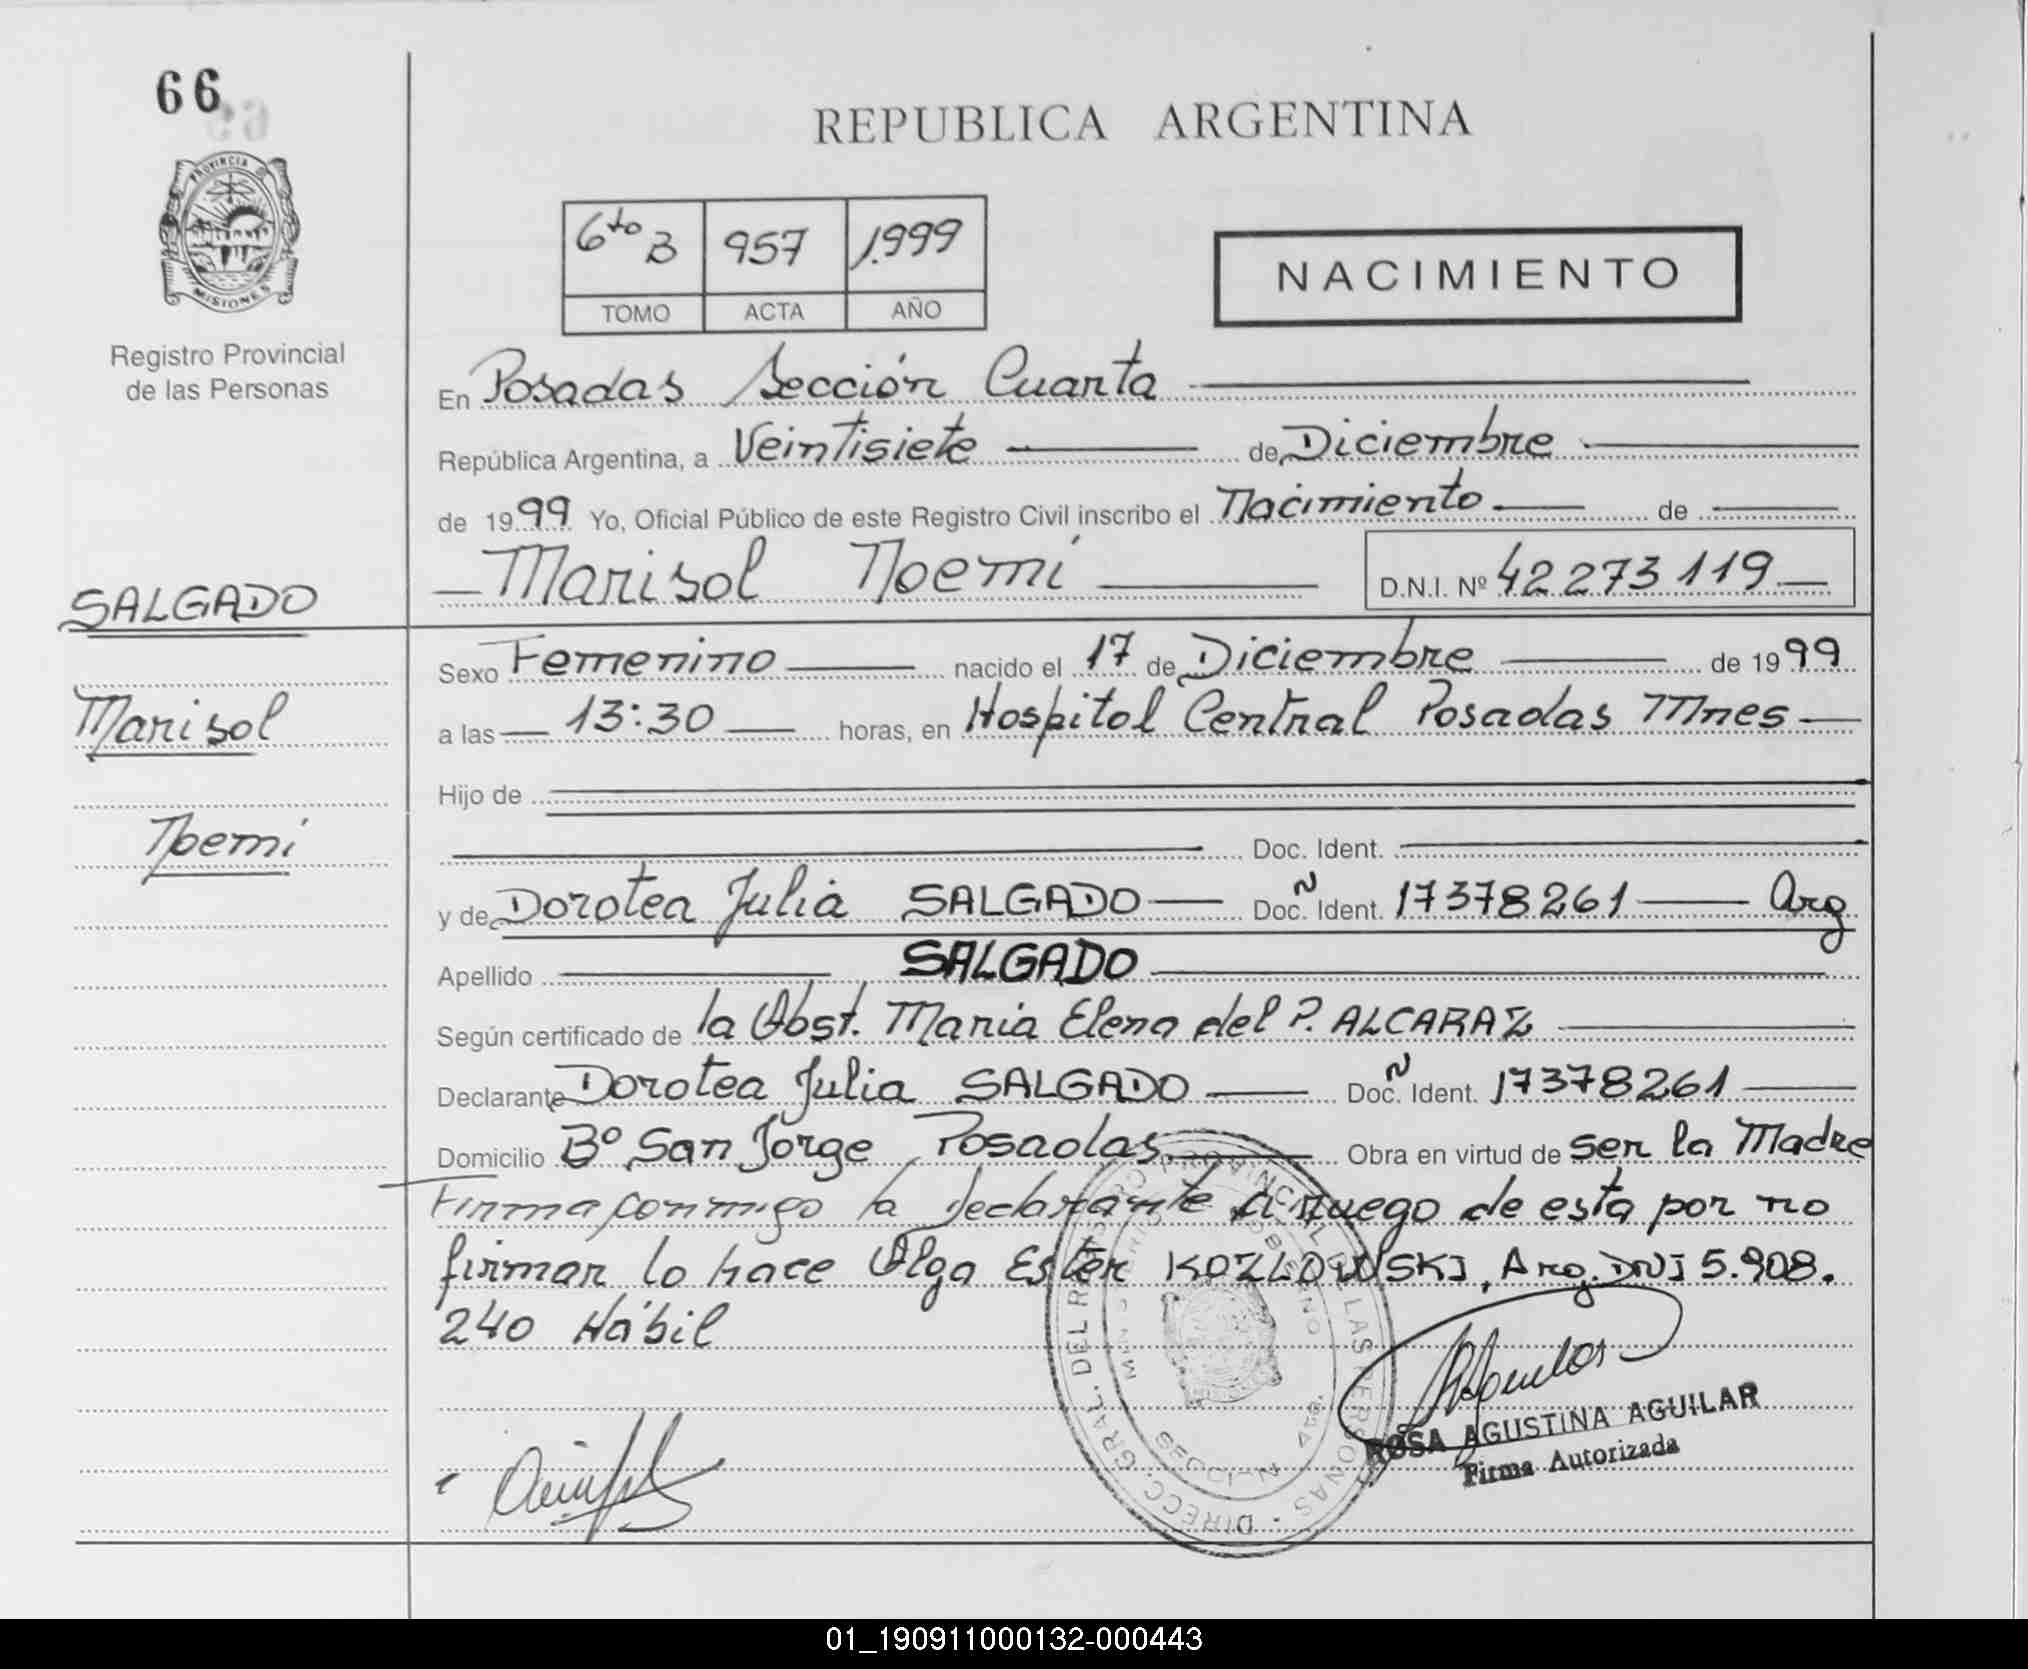 66
PROVINCIA DE
MISIONES
Registro Provincial
de las Personas
SALGADO
Marisol
Noemi
REPUBLICA ARGENTINA
6to B 957 1.999
TOMO ACTA AÑO
NACIMIENTO
En Posadas Sección Cuarta
República Argentina, a Veintisiete de Diciembre
de 1999 Yo, Oficial Público de este Registro Civil inscribo el Nacimiento de
Marisol Noemí D.N.I. Nº 42273119
Sexo Femenino nacido el 17 de Diciembre de 1999
a las 13:30 horas, en Hospital Central Posadas Mnes
Hijo de
Doc. Ident.
y de Dorotea Julia SALGADO Doc. Ñ Ident. 17378261 Arg
Apellido SALGADO
Según certificado de la Obst. Maria Elena del P. ALCARAZ
Declarante Dorotea Julia SALGADO Doc. Ñ Ident. 17378261
Domicilio Bº San Jorge Posadas Obra en virtud de ser la Madre
Firma conmigo la declarante a ruego de esta por no
firmar lo hace Olga Ester KOZLOWSKI, Arg. DNI 5.908.
240 Hábil
DIRECC. GRAL. DEL REGISTRO PROVINCIAL DE LAS PERSONAS
MINISTERIO DE GOBIERNO
SECCION 4ta.
ROSA AGUSTINA AGUILAR
Firma Autorizada
01_190911000132-000443